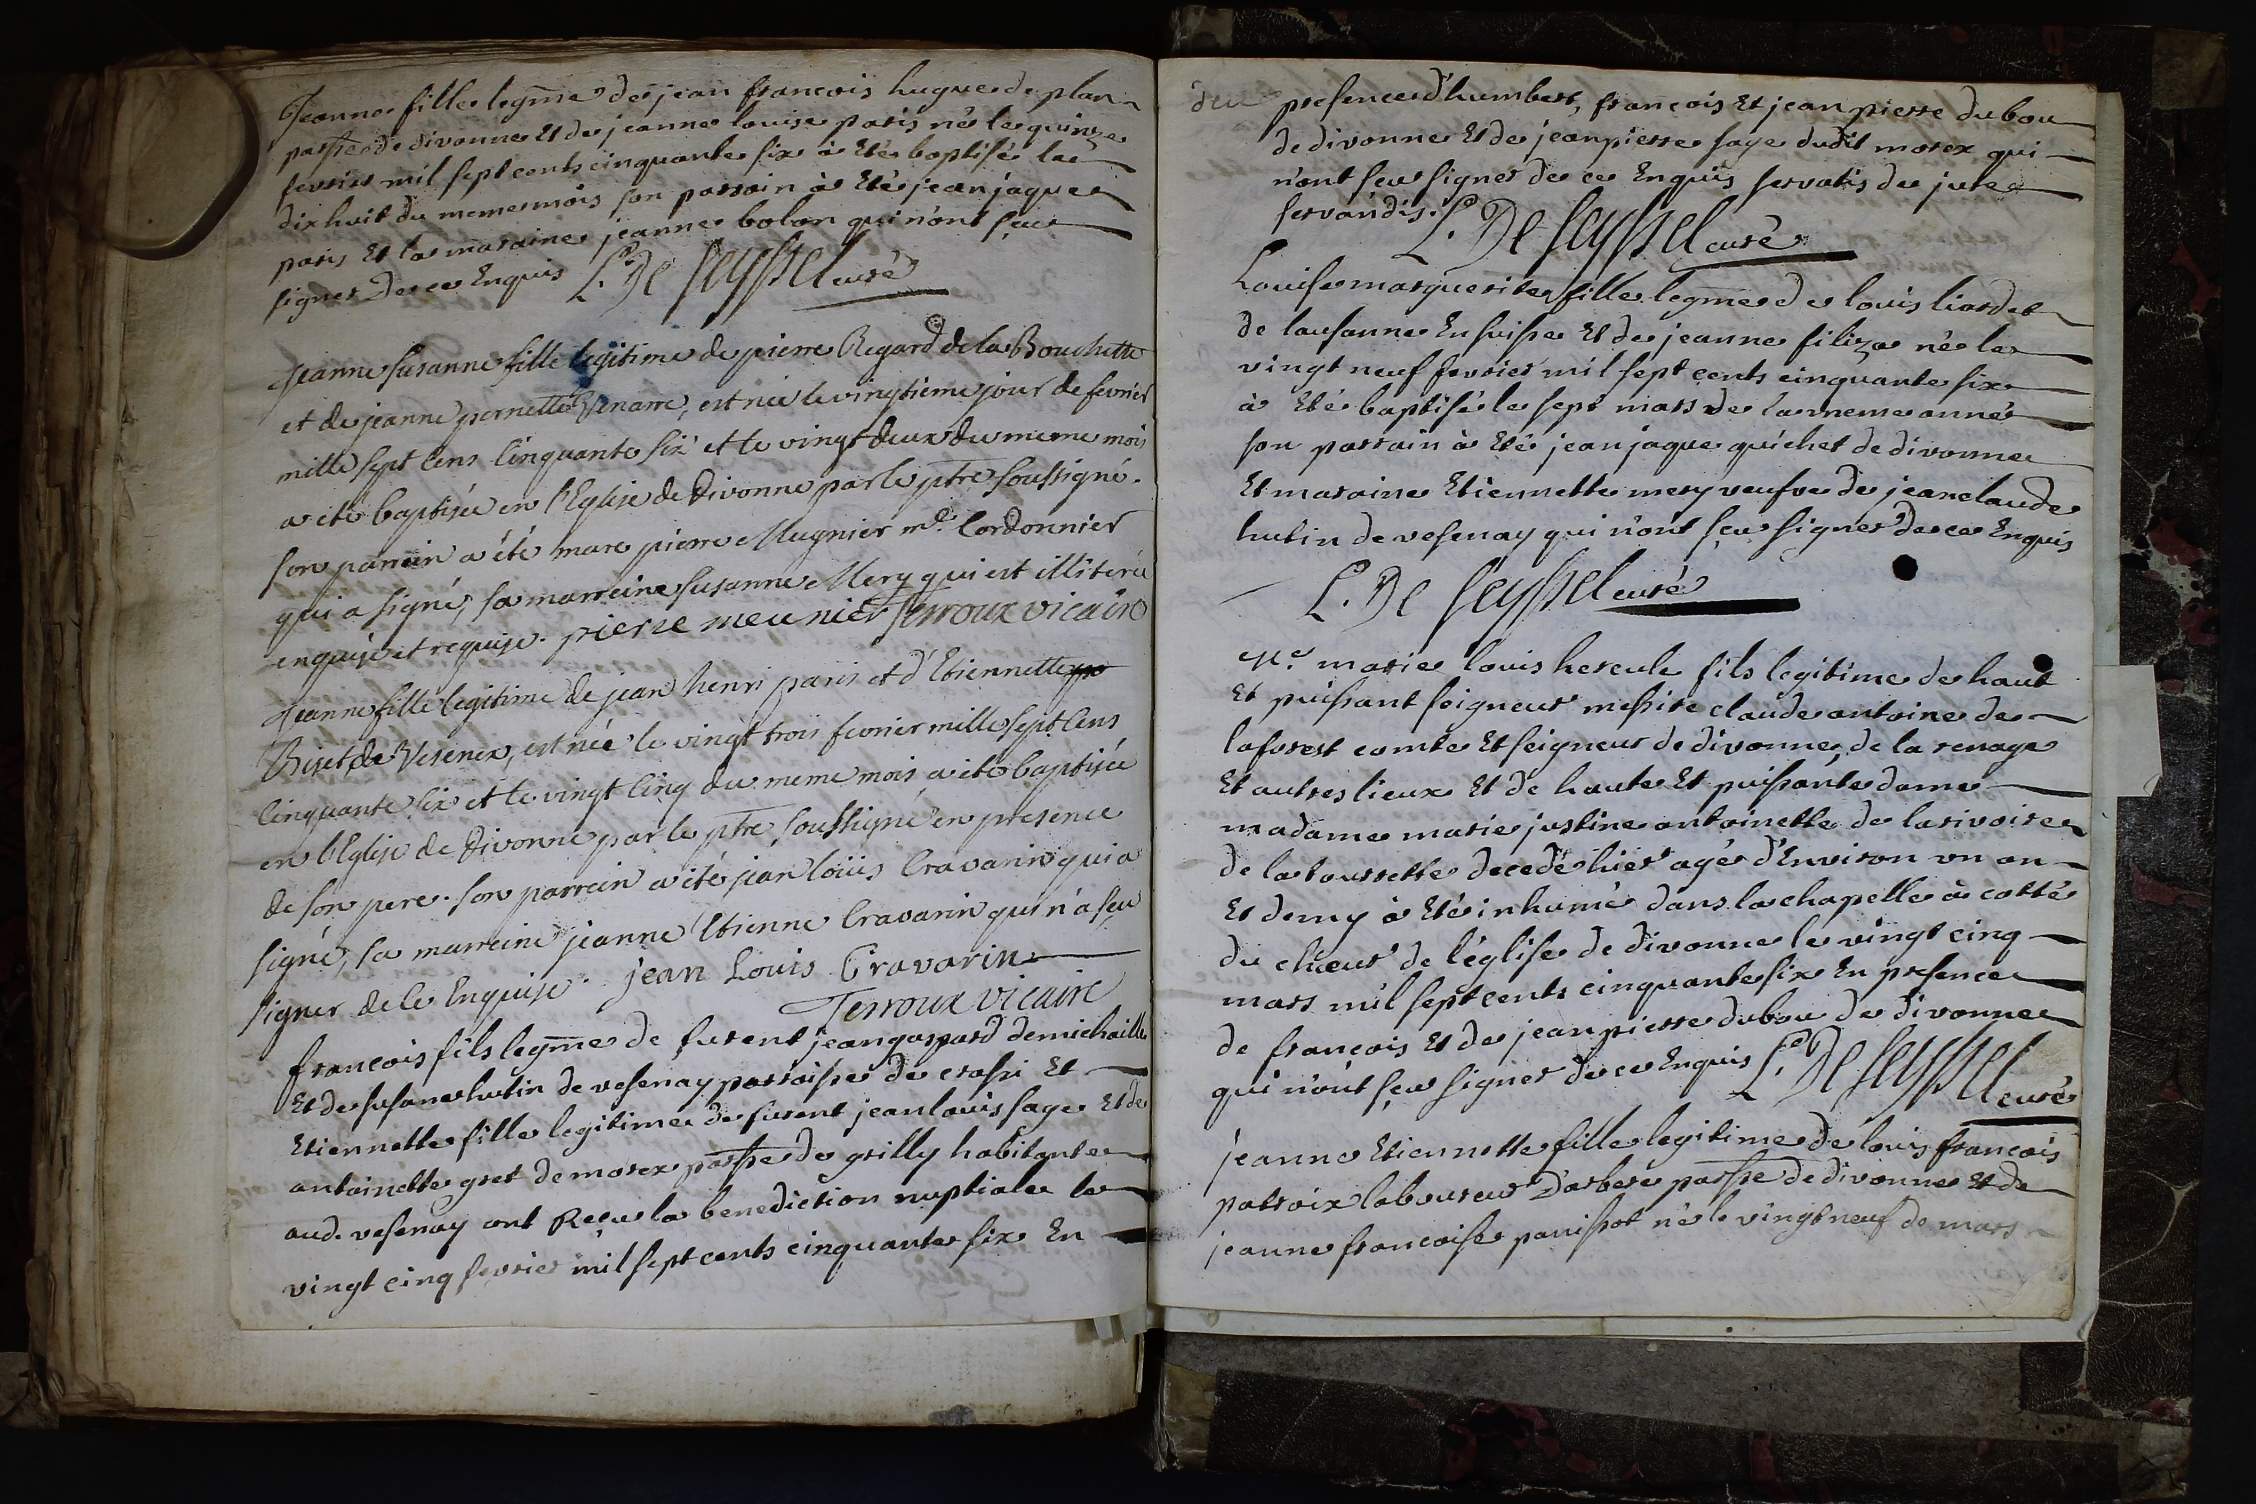 Jeanne fille legme de jean francois hugue de plan
parsse de divonne Et de jeanne louise paris né le quinze
fevrier mil sept cents cinquante six à Eté baptisé le
dix huit du meme mois son parrain à Eté jean jaque
paris Et la maraine jeanne bolon qui n'ont sçeu
signer de ce Enquis L. De Seyssel curé
Jeanne Susanne fille legitime de pierre Regard de la Bouchette
et de jeanne pernette Venarre, est née le vingtieme jour de fevrier
mille sept cens cinquante six et le vingt deux du meme mois
a eté baptisée en l'Eglise de Divonne par le ptre soussigné.
son parrein a été marc pierre Mugnier md. Cordonnier
qui a signé, sa marreine Susanne Mery qui est illiterée
enquise et requise. pierre meunier Terroux vicaire
Jeanne fille legitime de jean henri paris et d'Etiennette
Biset de Vesenex, est née le vingt trois fevrier mille sept cens
cinquante six et le vingt cinq du meme mois a eté baptisée
en l'Eglise de Divonne par le ptre soussigné en presence
de son pere. son parrein a été jean loüis Cravarin qui a
signé, sa marreine jeanne Etienne Cravarin qui n'a sçu
signer de ce Enquise. jean Louis Cravarin
Terroux vicaire
francois fils legme de furent jean gaspard demichaille
Et de susane hutin de vesenay parroisse de crassi Et
Etiennette fille legitime de furent jean louis sage Et de
antoinette gret de morex parsse de grilly habitante
aud. vesenay ont Reçu la benediction nuptiale le
vingt cinq fevrier mil sept cents cinquante six En
presence d'humbert, francois Et jean pierre dubou
de divonne Et de jean pierre sage dudit morex qui
n'ont sçeu signer de ce Enquis servatis de jure
servandis. L. De Seyssel curé
Louise marguerite fille legme de louis liardet
de lausanne En suisse Et de jeanne filiza né le
vingt neuf fevrier mil sept cents cinquante six
à Eté baptisé le sept mars de la meme année
son parrain à Eté jean jaque quichet de divonne
Et maraine Etiennette mery veufve de jean claude
hutin de vesenay qui n'ont sçeu signer de ce Enquis
L. De Seyssel curé
Mre marie louis hercule fils legitime de haut
Et puissant seigneur messire claude antoine de
laforest comte Et seigneur de divonne, de la renage
Et autres lieux Et de haute Et puissante dame
madame marie justine antoinette de larivoire
de la tourrette decedé hier agé d'Environ un an
Et demy à Eté inhumé dans la chapelle à cotté
du chœur de l'église de divonne le vingt cinq
mars mil sept cents cinquante six En presence
de francois Et de jean pierre dubou de divonne
qui n'ont sçeu signer de ce Enquis L. De Seyssel curé
jeanne Etiennette fille legitime de louis francois
patroix laboureur D'arbere parsse de divonne Et de
jeanne francoise panissot né le vingt neuf de mars